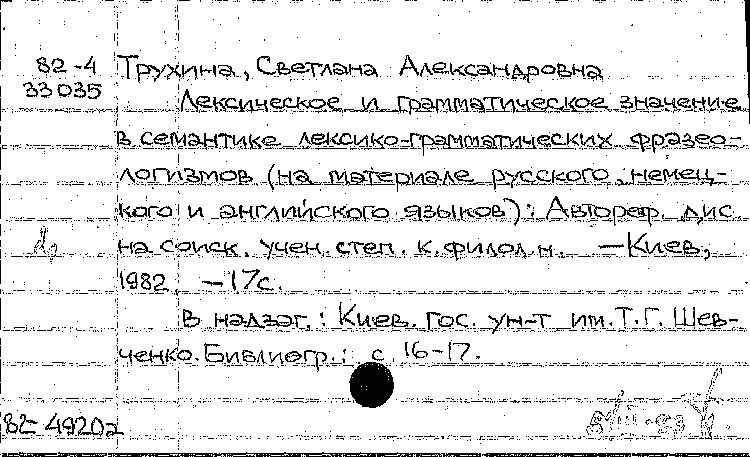 82-4 Трухина, Светлана Александровна
33035 Лексическое и грамматическое значение
в семантике лексико-грамматических фразео-
логизмов (на материале русского, немец-
кого и английского языков): Автореф. дис.
на соиск. учен. степ. к. филол. н. — Киев,
1982. — 17с.
В надзаг.: Киев. гос. ун-т им. Т.Г. Шев-
ченко. Библиогр.: с. 16-17.
82-49202